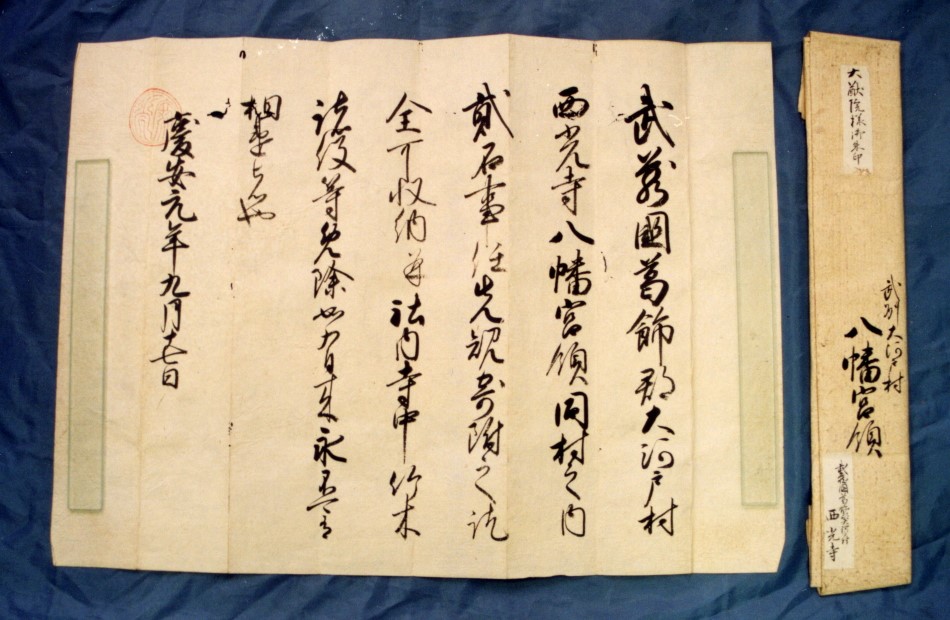 武蔵國葛飾郡大河戸村
西光寺八幡宮領同村之内
貳石事任先規寄附之訖
全可収納并社内寺中竹木
諸役等免除如有来永不可有
相違者也
慶安元年九月十七日
大猷院様御朱印
武州大河戸村
八幡宮領
武蔵國葛飾郡大河戸村
西光寺